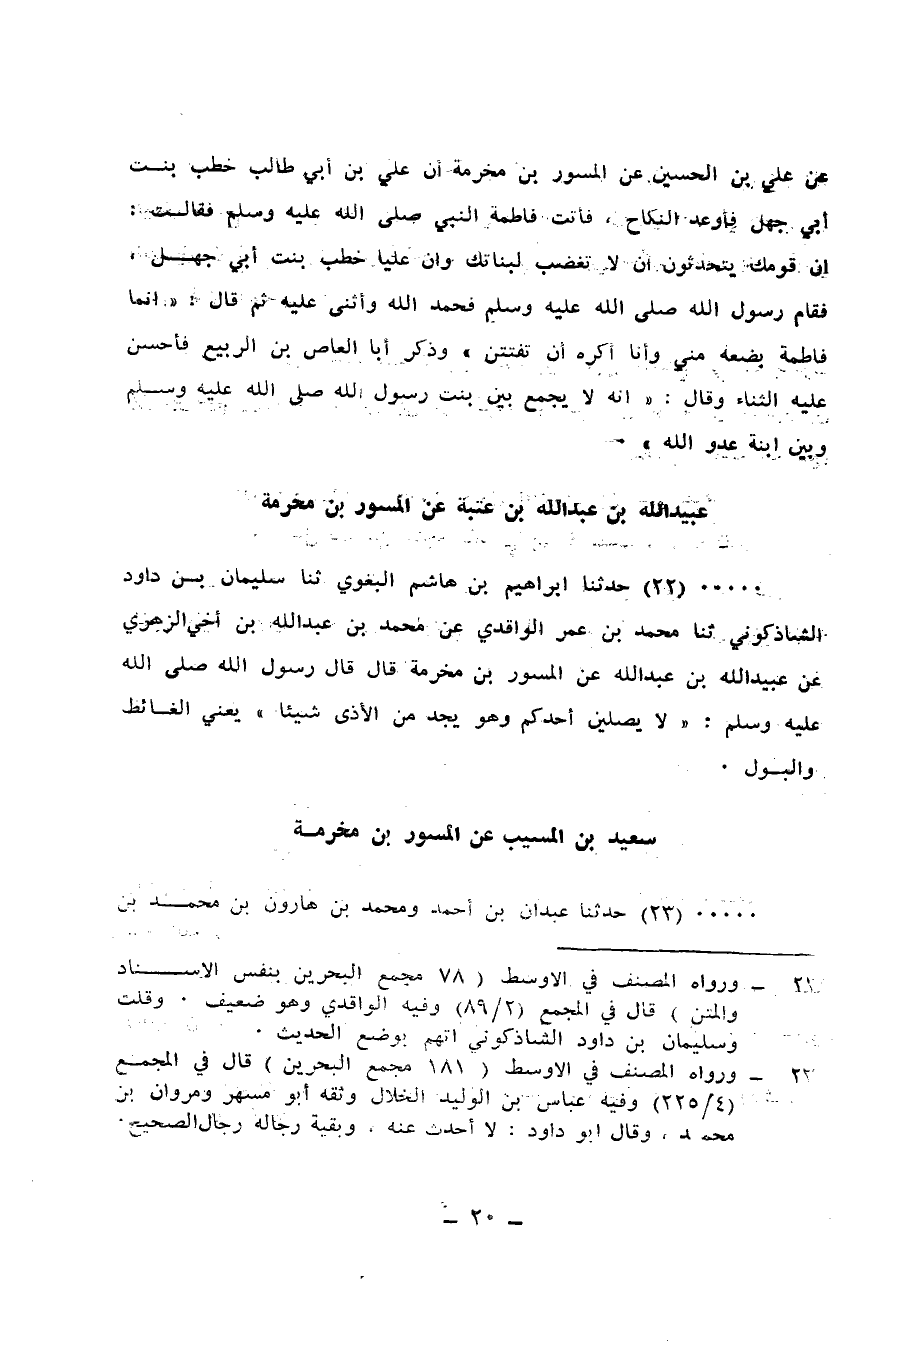 عن علي بن الحسين عن المسور بن مخرمة أن علي بن أبي طالب خطب بنت
أبي جهل فأوعد النكاح ، فأتت فاطمة النبي صلى الله عليه وسلم فقالت :
ان قومك يتحدثون أن لا تغضب لبناتك وان عليا خطب بنت أبي جهل ،
فقام رسول الله صلى الله عليه وسلم فحمد الله وأثنى عليه ثم قال : « انما
فاطمة بضعة مني وأنا أكره أن تفتتن » وذكر أبا العاص بن الربيع فأحسن
عليه الثناء وقال : « انه لا يجمع بين بنت رسول الله صلى الله عليه وسلم
وبين ابنة عدو الله » ٠
عبيدالله بن عبدالله بن عتبة عن المسور بن مخرمة
٠٠٠٠٠ (٢٢) حدثنا ابراهيم بن هاشم البغوي ثنا سليمان بن داود
الشاذكوني ثنا محمد بن عمر الواقدي عن محمد بن عبدالله بن أخي الزهري
عن عبيدالله بن عبدالله عن المسور بن مخرمة قال قال رسول الله صلى الله
عليه وسلم : « لا يصلين أحدكم وهو يجد من الأذى شيئا » يعني الغائط
والبول ٠
سعيد بن المسيب عن المسور بن مخرمة
٠٠٠٠٠ (٢٣) حدثنا عبدان بن أحمد ومحمد بن هارون بن محمد بن
ـ ورواه المصنف في الاوسط ( ٧٨ مجمع البحرين بنفس الاسناد
والمتن ) قال في المجمع (٨٩/٢) وفيه الواقدي وهو ضعيف ٠ وقلت
وسليمان بن داود الشاذكوني اتهم بوضع الحديث ٠
ـ ورواه المصنف في الاوسط ( ١٨١ مجمع البحرين ) قال في المجمع
(٢٢٥/٤) وفيه عباس بن الوليد الخلال وثقه أبو مسهر ومروان بن
محمد ، وقال ابو داود : لا أحدث عنه ، وبقية رجاله رجال الصحيح ٠
ـ ٢٠ ـ